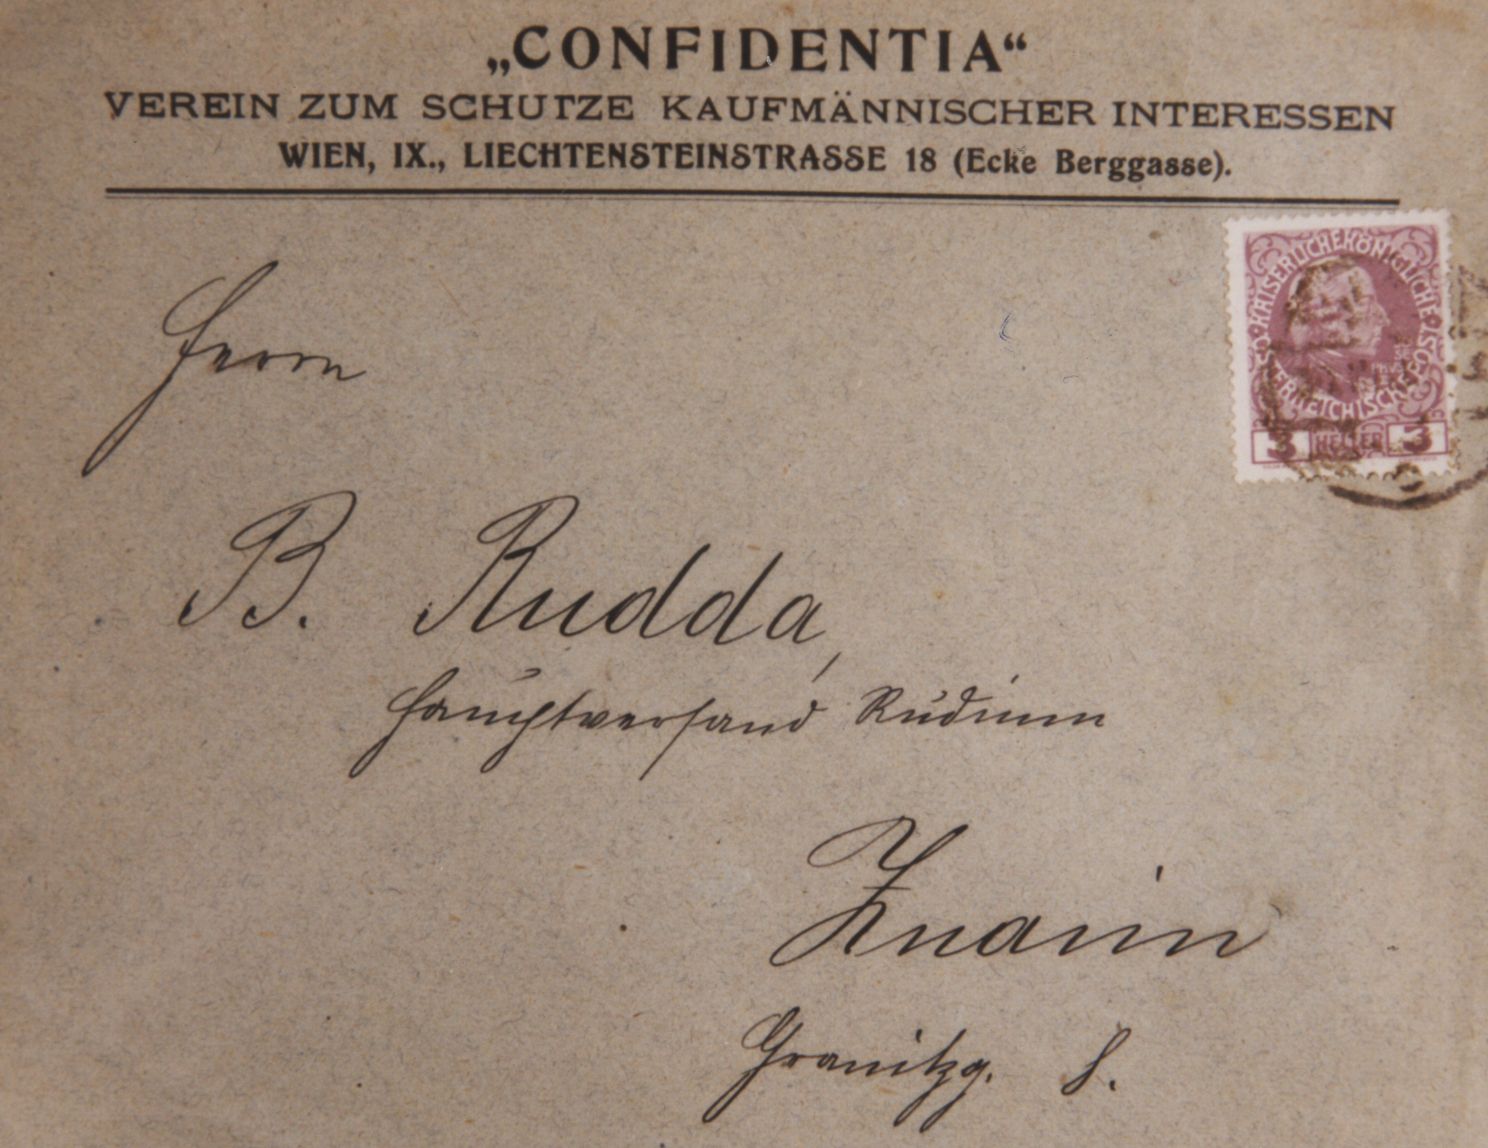 „CONFIDENTIA“
VEREIN ZUM SCHUTZE KAUFMÄNNISCHER INTERESSEN
WIEN, IX., LIECHTENSTEINSTRASSE 18 (Ecke Berggasse).
KAISERLICHEKÖNIGLICHE
ÖSTERREICHISCHE POST
3 HELLER 3
Herrn
B. Rudda,
Hauptversand Rudinin
Znaim
Granitzg. 8.